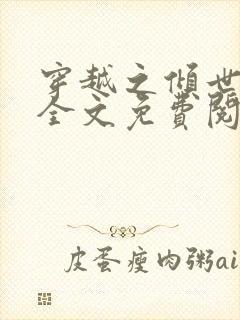 穿越之倾世
全文免費閱
皮蛋瘦肉粥ai